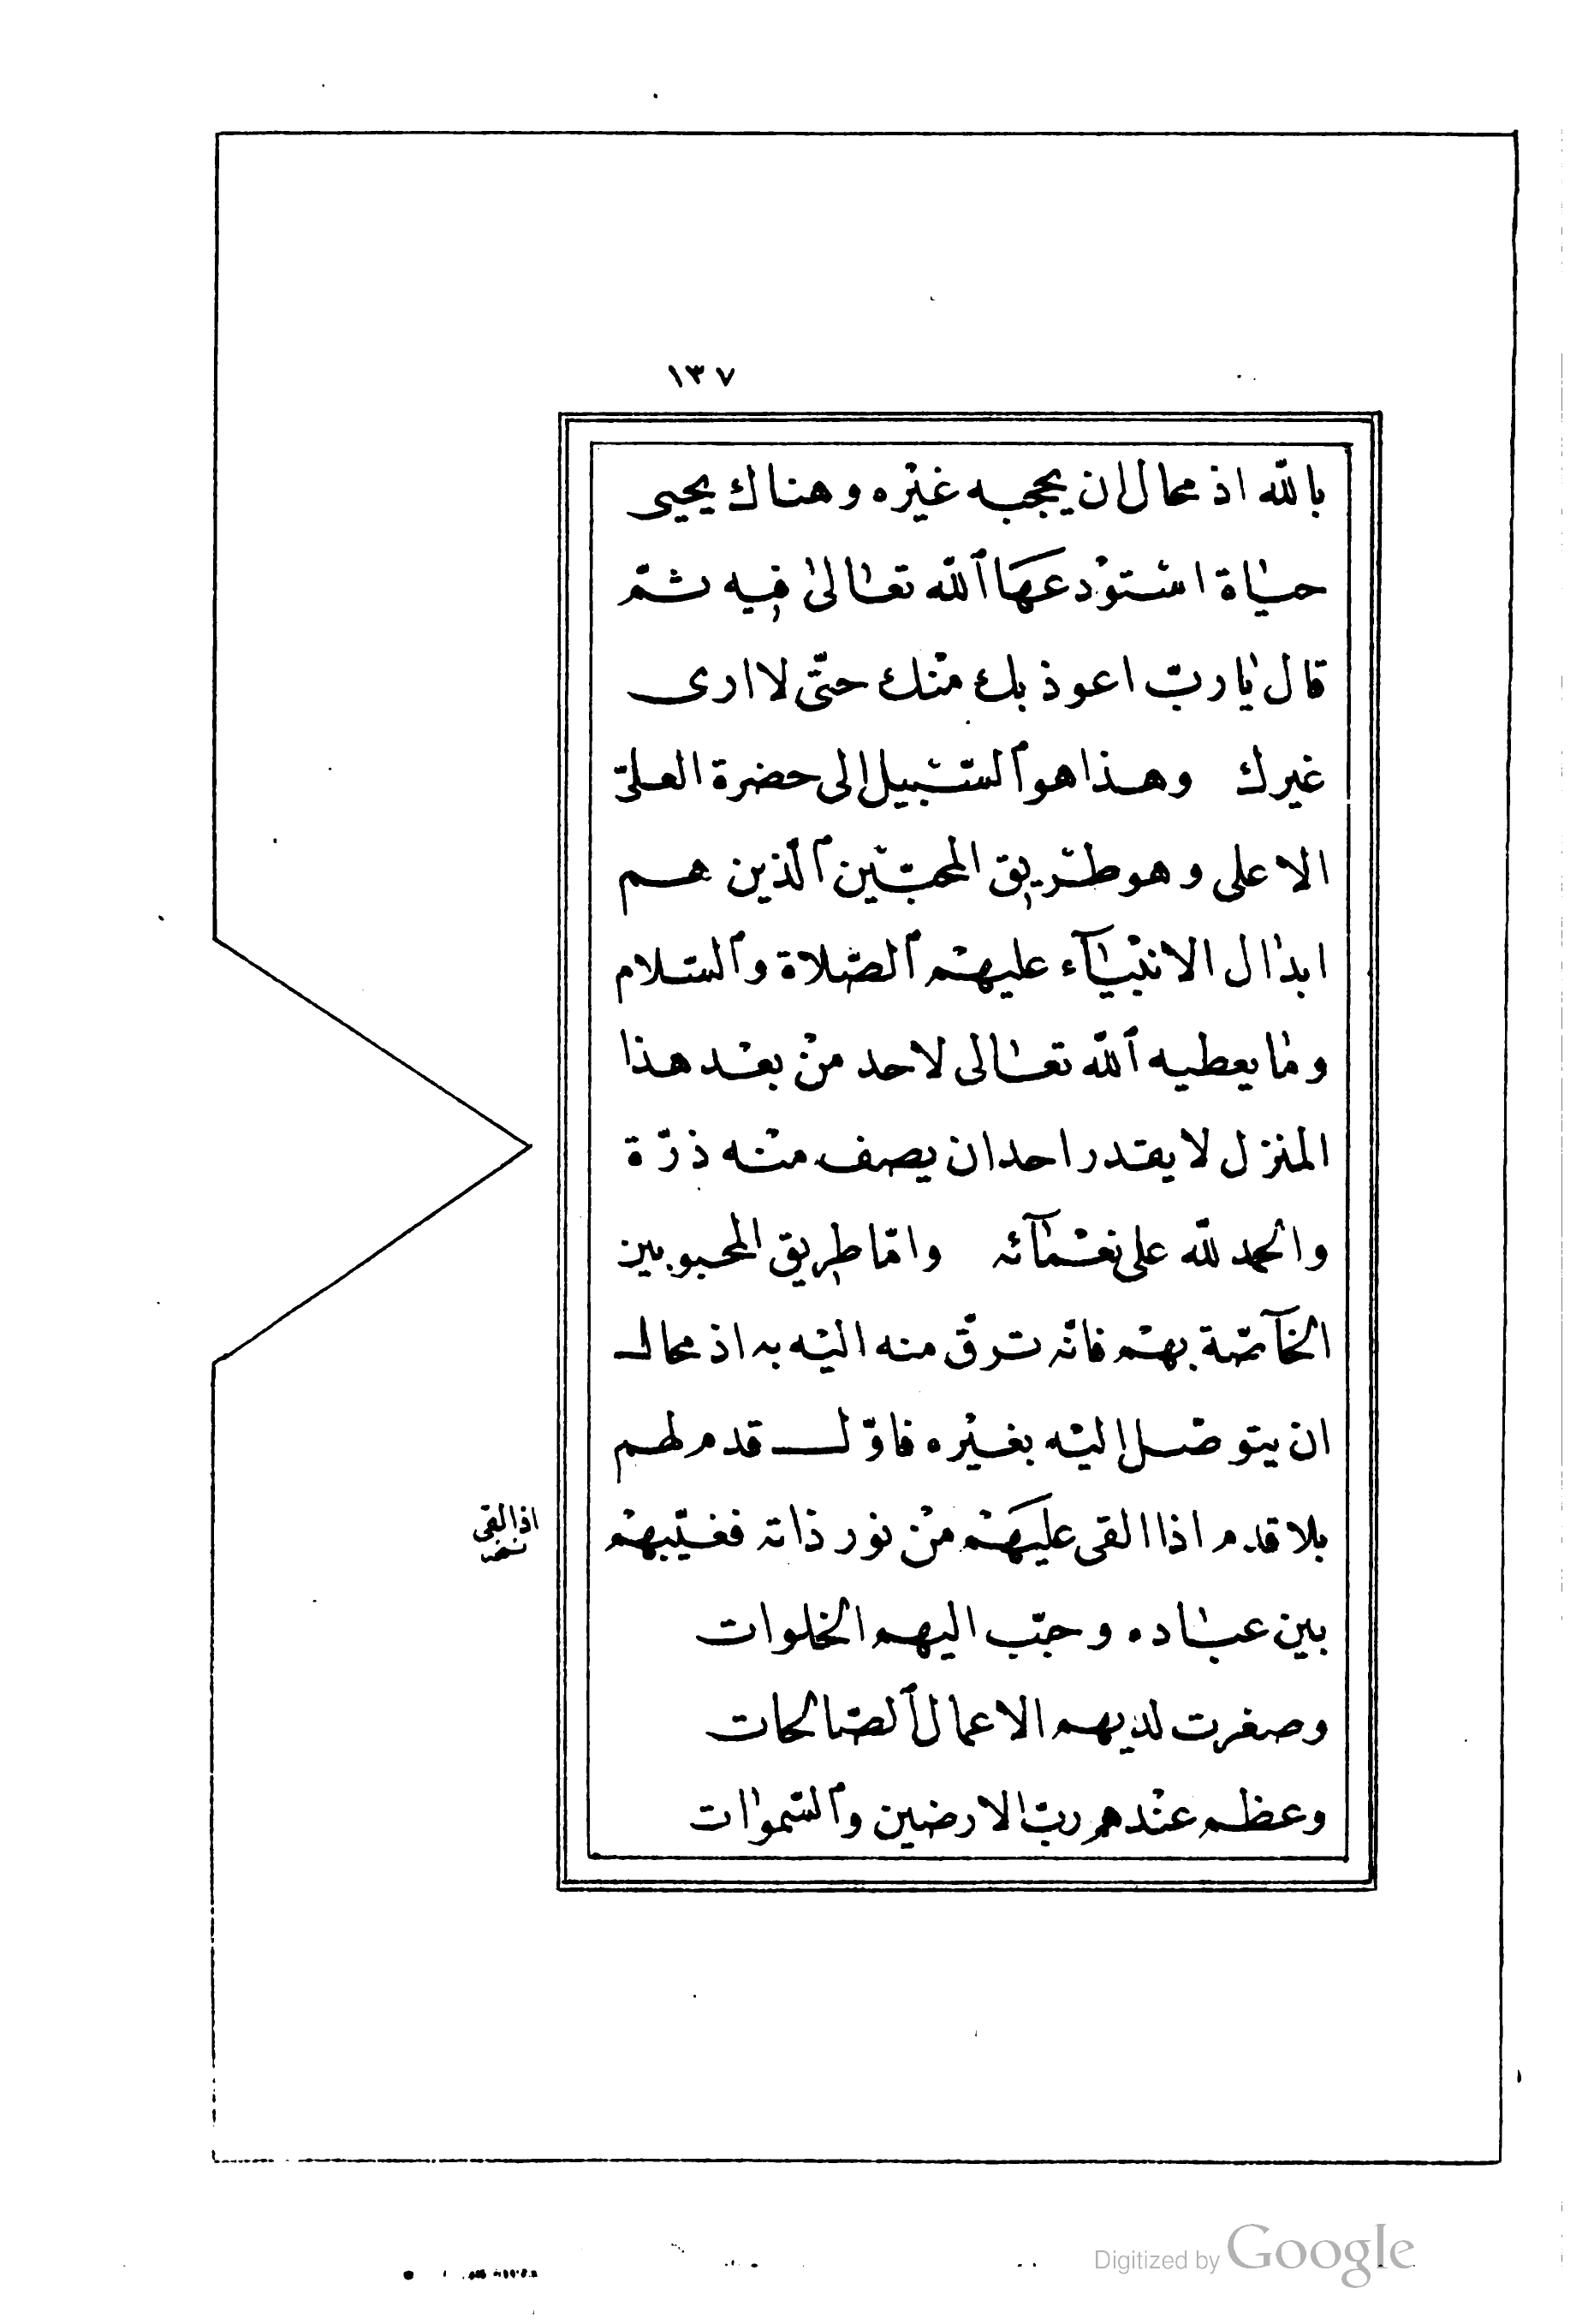 ١٣٧
بالله اذ محال ان يحجبه غيره وهناك يحيى
حياة استودعها ٱلله تعالى فيه ثم
قال يارب اعوذ بك منك حتى لا ارى
غيرك وهذا هو ٱلسبيل الى حضرة العلى
الاعلى وهو طريق المحبين ٱلذين هم
ابدال الانبياء عليهم ٱلصلاة وٱلسلام
وما يعطيه ٱلله تعالى لاحد من بعد هذا
المنزل لا يقدر احد ان يصف منه ذرة
والحمد لله على نعمائه واما طريق المحبوبين
الخاصة بهم فانه ترق منه اليه به اذ محال
ان يتوصل اليه بغيره فاول قدم لهم
بلا قدم اذا القى عليهم من نور ذاته فغيبهم
اذ القى
نسخه
بين عباده وحبب اليهم الخلوات
وصغرت لديهم الاعمال ٱلصالحات
وعظم عندهم رب الارضين وٱلسموات
Digitized by Google